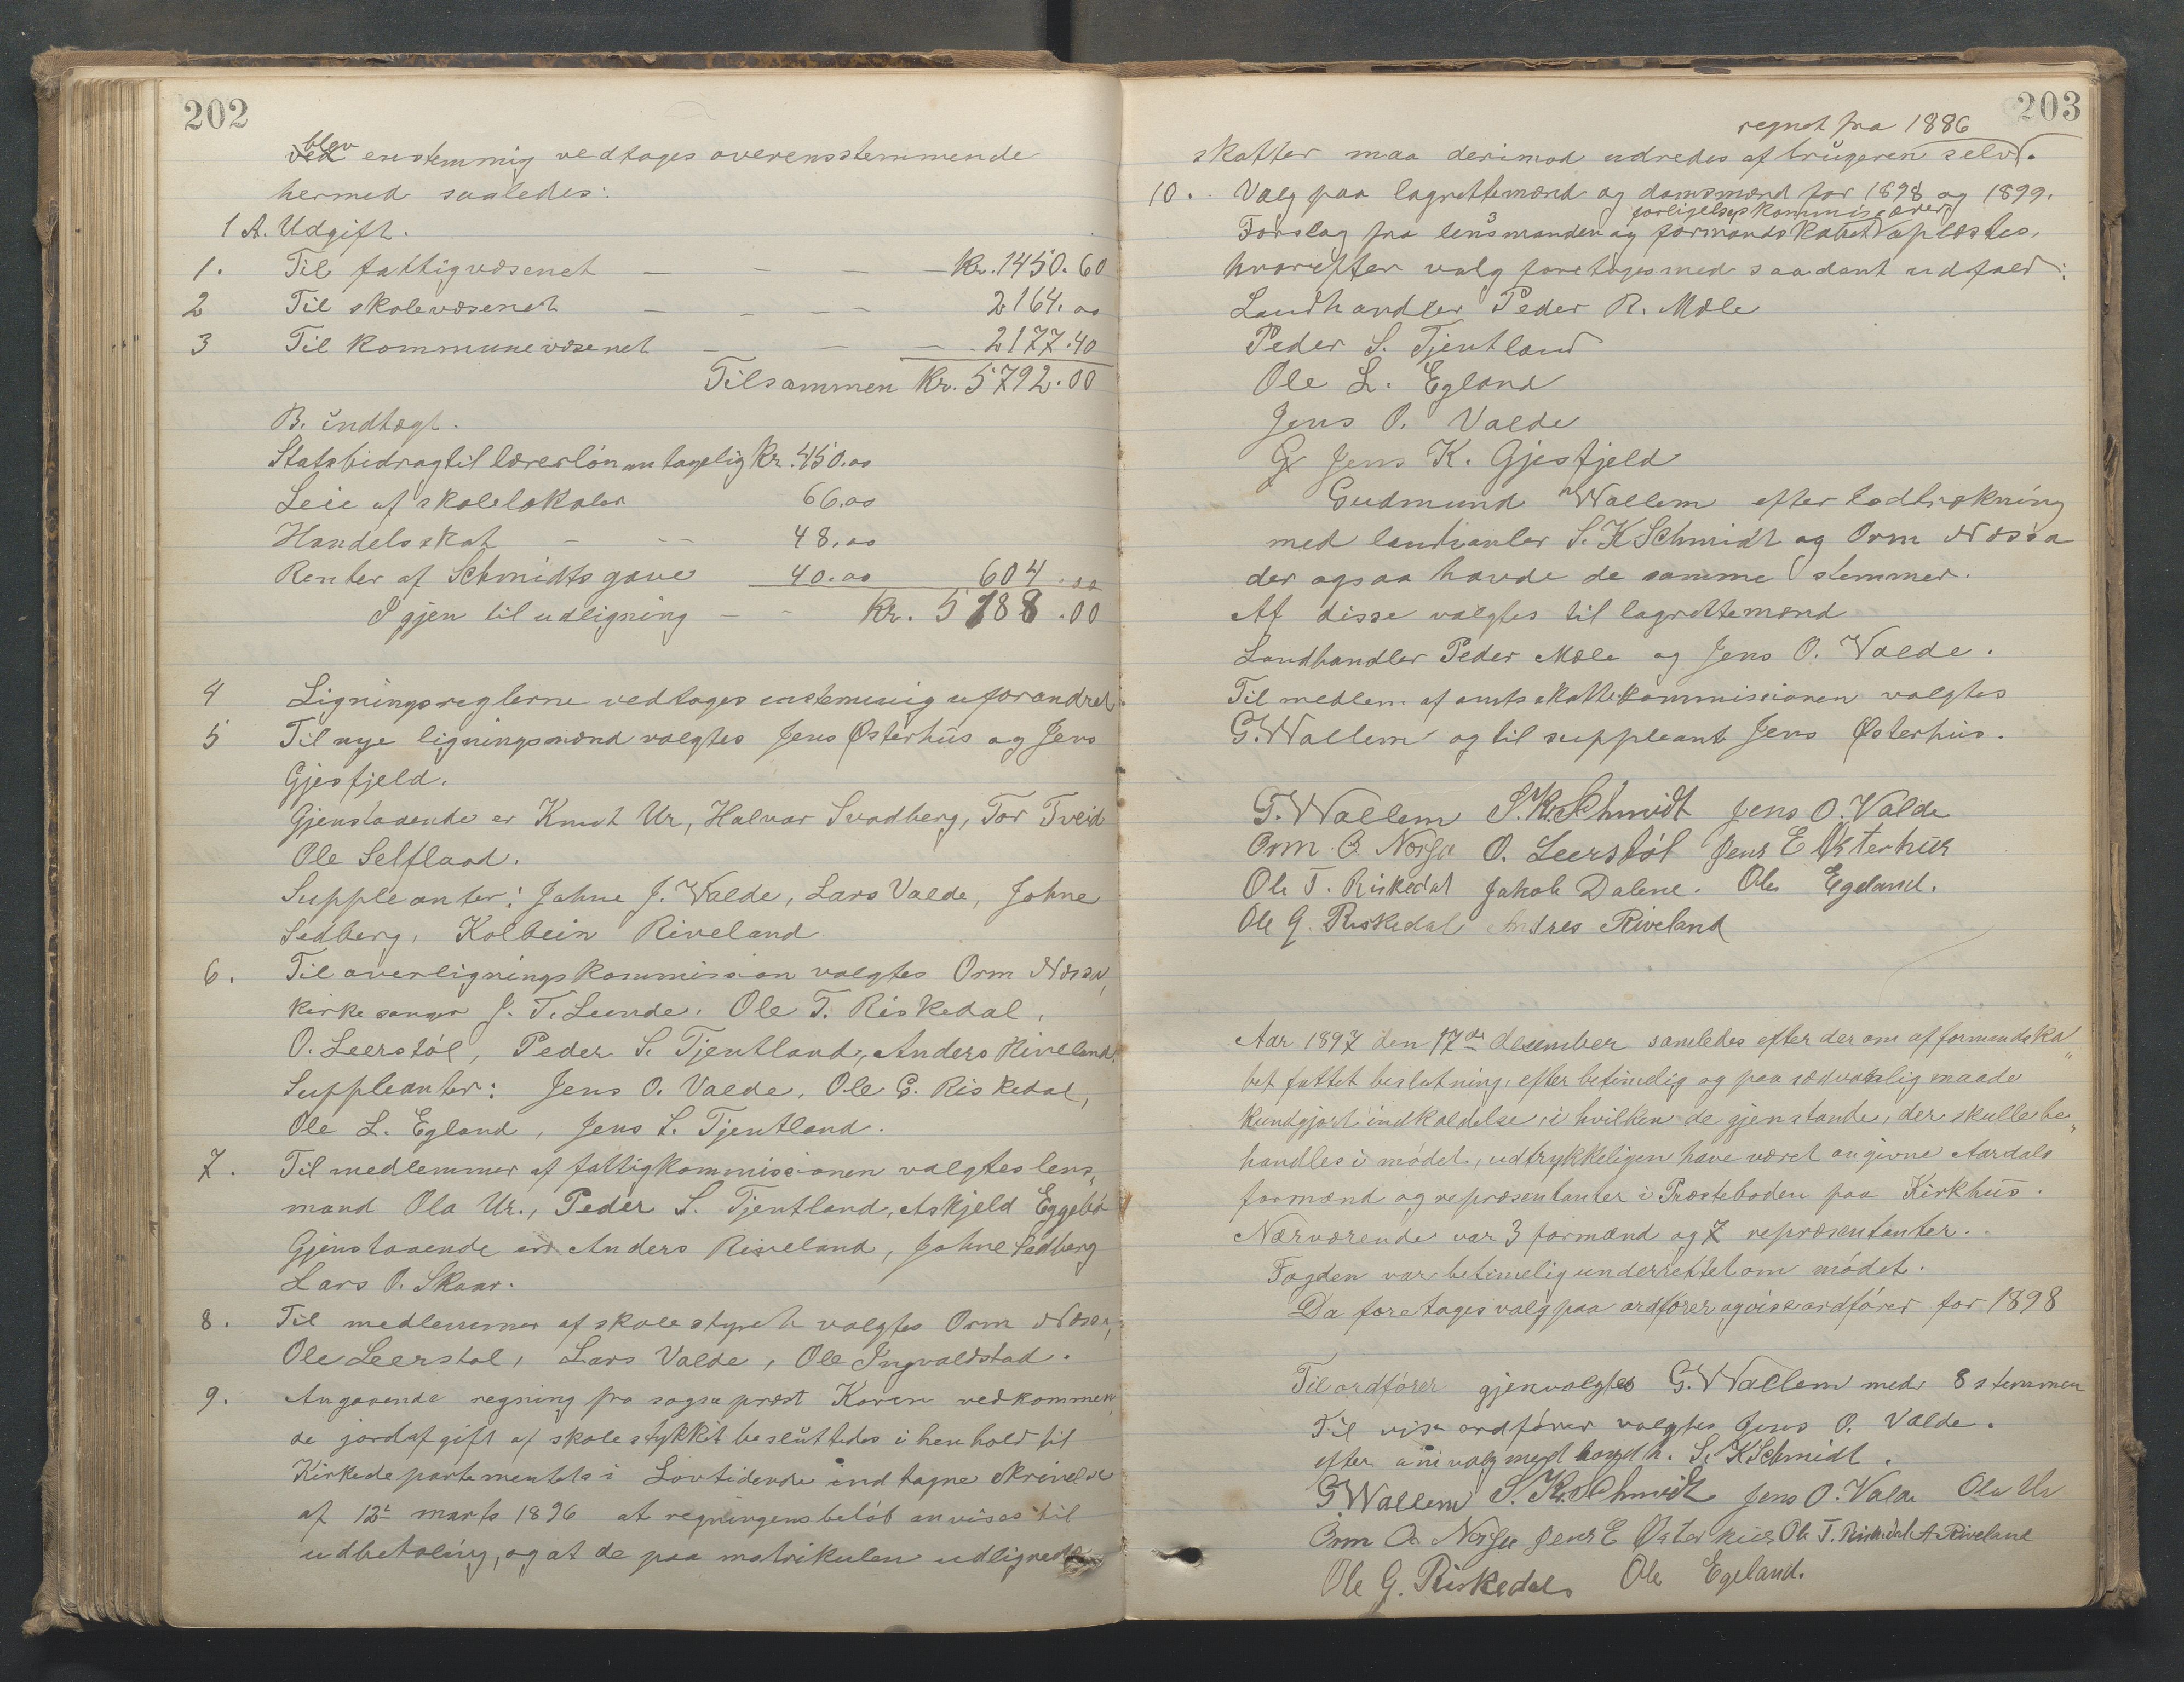 202
blev
enstemmig vedtages overensstemmende
hermed saaledes:
1 A. Udgift.
1. Til fattigvæsenet — — — — Kr. 1450.60
2 Til skolevæsenet — — — — 2164.00
3 Til Kommunevæsenet — — — 2177.40
Tilsammen Kr. 5792.00
B. indtægt.
Statsbidrag til lærerløn antagelig Kr. 450.00
Leie af skolelokaler 66.00
Handelsskat — — — 48.00
Renter af Schmidts gave 40.00 604.00
Igjen til udligning — — Kr. 5188.00
4 Ligningsreglerne vedtages enstemmig uforandret.
5 Til nye ligningsmænd valgtes Jens Østerhus og Jens
Gjesfjeld.
Gjenstaaende er Knut Ur, Halvor Svadberg, Tor Tveid
Ole Selfland.
Suppleanter: Johne J. Valde, Lars Valde, Johne
Sedberg, Kolbein Riveland
6. Til overligningskommission valgtes Orm Næssa,
kirkesanger J. T. Leende, Ole T. Riskedal,
O. Leerstøl, Peder S. Tjentland, Anders Riveland.
Suppleanter: Jens O. Valde, Ole G. Riskedal,
Ole L. Egland, Jens S. Tjentland.
7. Til medlemmer af fattigkommissionen valgtes lens„
mand Ola Ur., Peder S. Tjentland, Askjeld Eggebø
Gjenstaaende er Anders Riveland, Johne Sedberg
Lars O. Skaar.
8. Til medlemmer af skolestyret valgtes Orm Næssa,
Ole Leerstøl, Lars Valde, Ole Ingvaldstad.
9. Angaaende regning fra sogneprest Koren vedkommen„
de jordafgift af skolestykket besluttedes i henhold til
Kirkedepartementets i Lovtidende indtagne skrivelse
af 12te marts 1896 at regningens beløb anvises til
udbetaling, og at de paa matrikulen udlignede
203
regnet fra 1886
skatter maa derimod udredes af brugeren selv.
10. Valg paa lagrettemænd og domsmænd for 1898 og 1899.
forligelseskommissærer
Forslag fra lensmanden og formandskabet oplæstes,
hvorefter valg foretoges med saadant udfald:
Landhandler Peder R. Mæle
Peder S. Tjentland
Ole L. Egland
Jens O. Valde
Jens K. Gjesfjeld
Gudmund Wallem efter lodtrækning
med landhandler S. K Schmidt og Orm Næssa
der ogsaa havde de samme stemmer.
Af disse valgtes til lagrettemænd
Landhandler Peder Mæle og Jens O. Valde.
Til medlem af amtsskattekommissionen valgtes
G. Wallem og til suppleant Jens Østerhus.
G. Wallem S. K. Schmidt Jens O. Valde
Orm O. Næssa O. Leerstøl Jens E Østerhus
Ole T. Riskedal Jakob Dalene. Ole Egeland.
Ole G. Riskedal Andres Riveland
Aar 1897 den 17de desember samledes efter derom af formandska„
bet fattet beslutning, efter betimelig og paa sædvanlig maade
kundgjort indkaldelse, i hvilken de gjenstande, der skulle be„
handles i mødet, udtrykkeligen have været angivne Aardals
formænd og repræsentanter i Præsteboden paa Kirkhus.
Nærværende var 3 formænd og 7 repræsentanter.
Fogden var betimelig underrettet om mødet.
Da foretages valg paa ordfører og viseordfører for 1898
Til ordfører gjenvalgtes G. Wallem med 8 stemmer
Til vise ordfører valgtes Jens O. Valde.
efter omvalg med landh. S. K Schmidt.
G Wallem S. K. Schmidt Jens O. Valde Ola Ur
Orm O. Næssa Jens E Østerhus Ole T. Riskedal A Riveland
Ole G. Riskedal Ole Egeland.